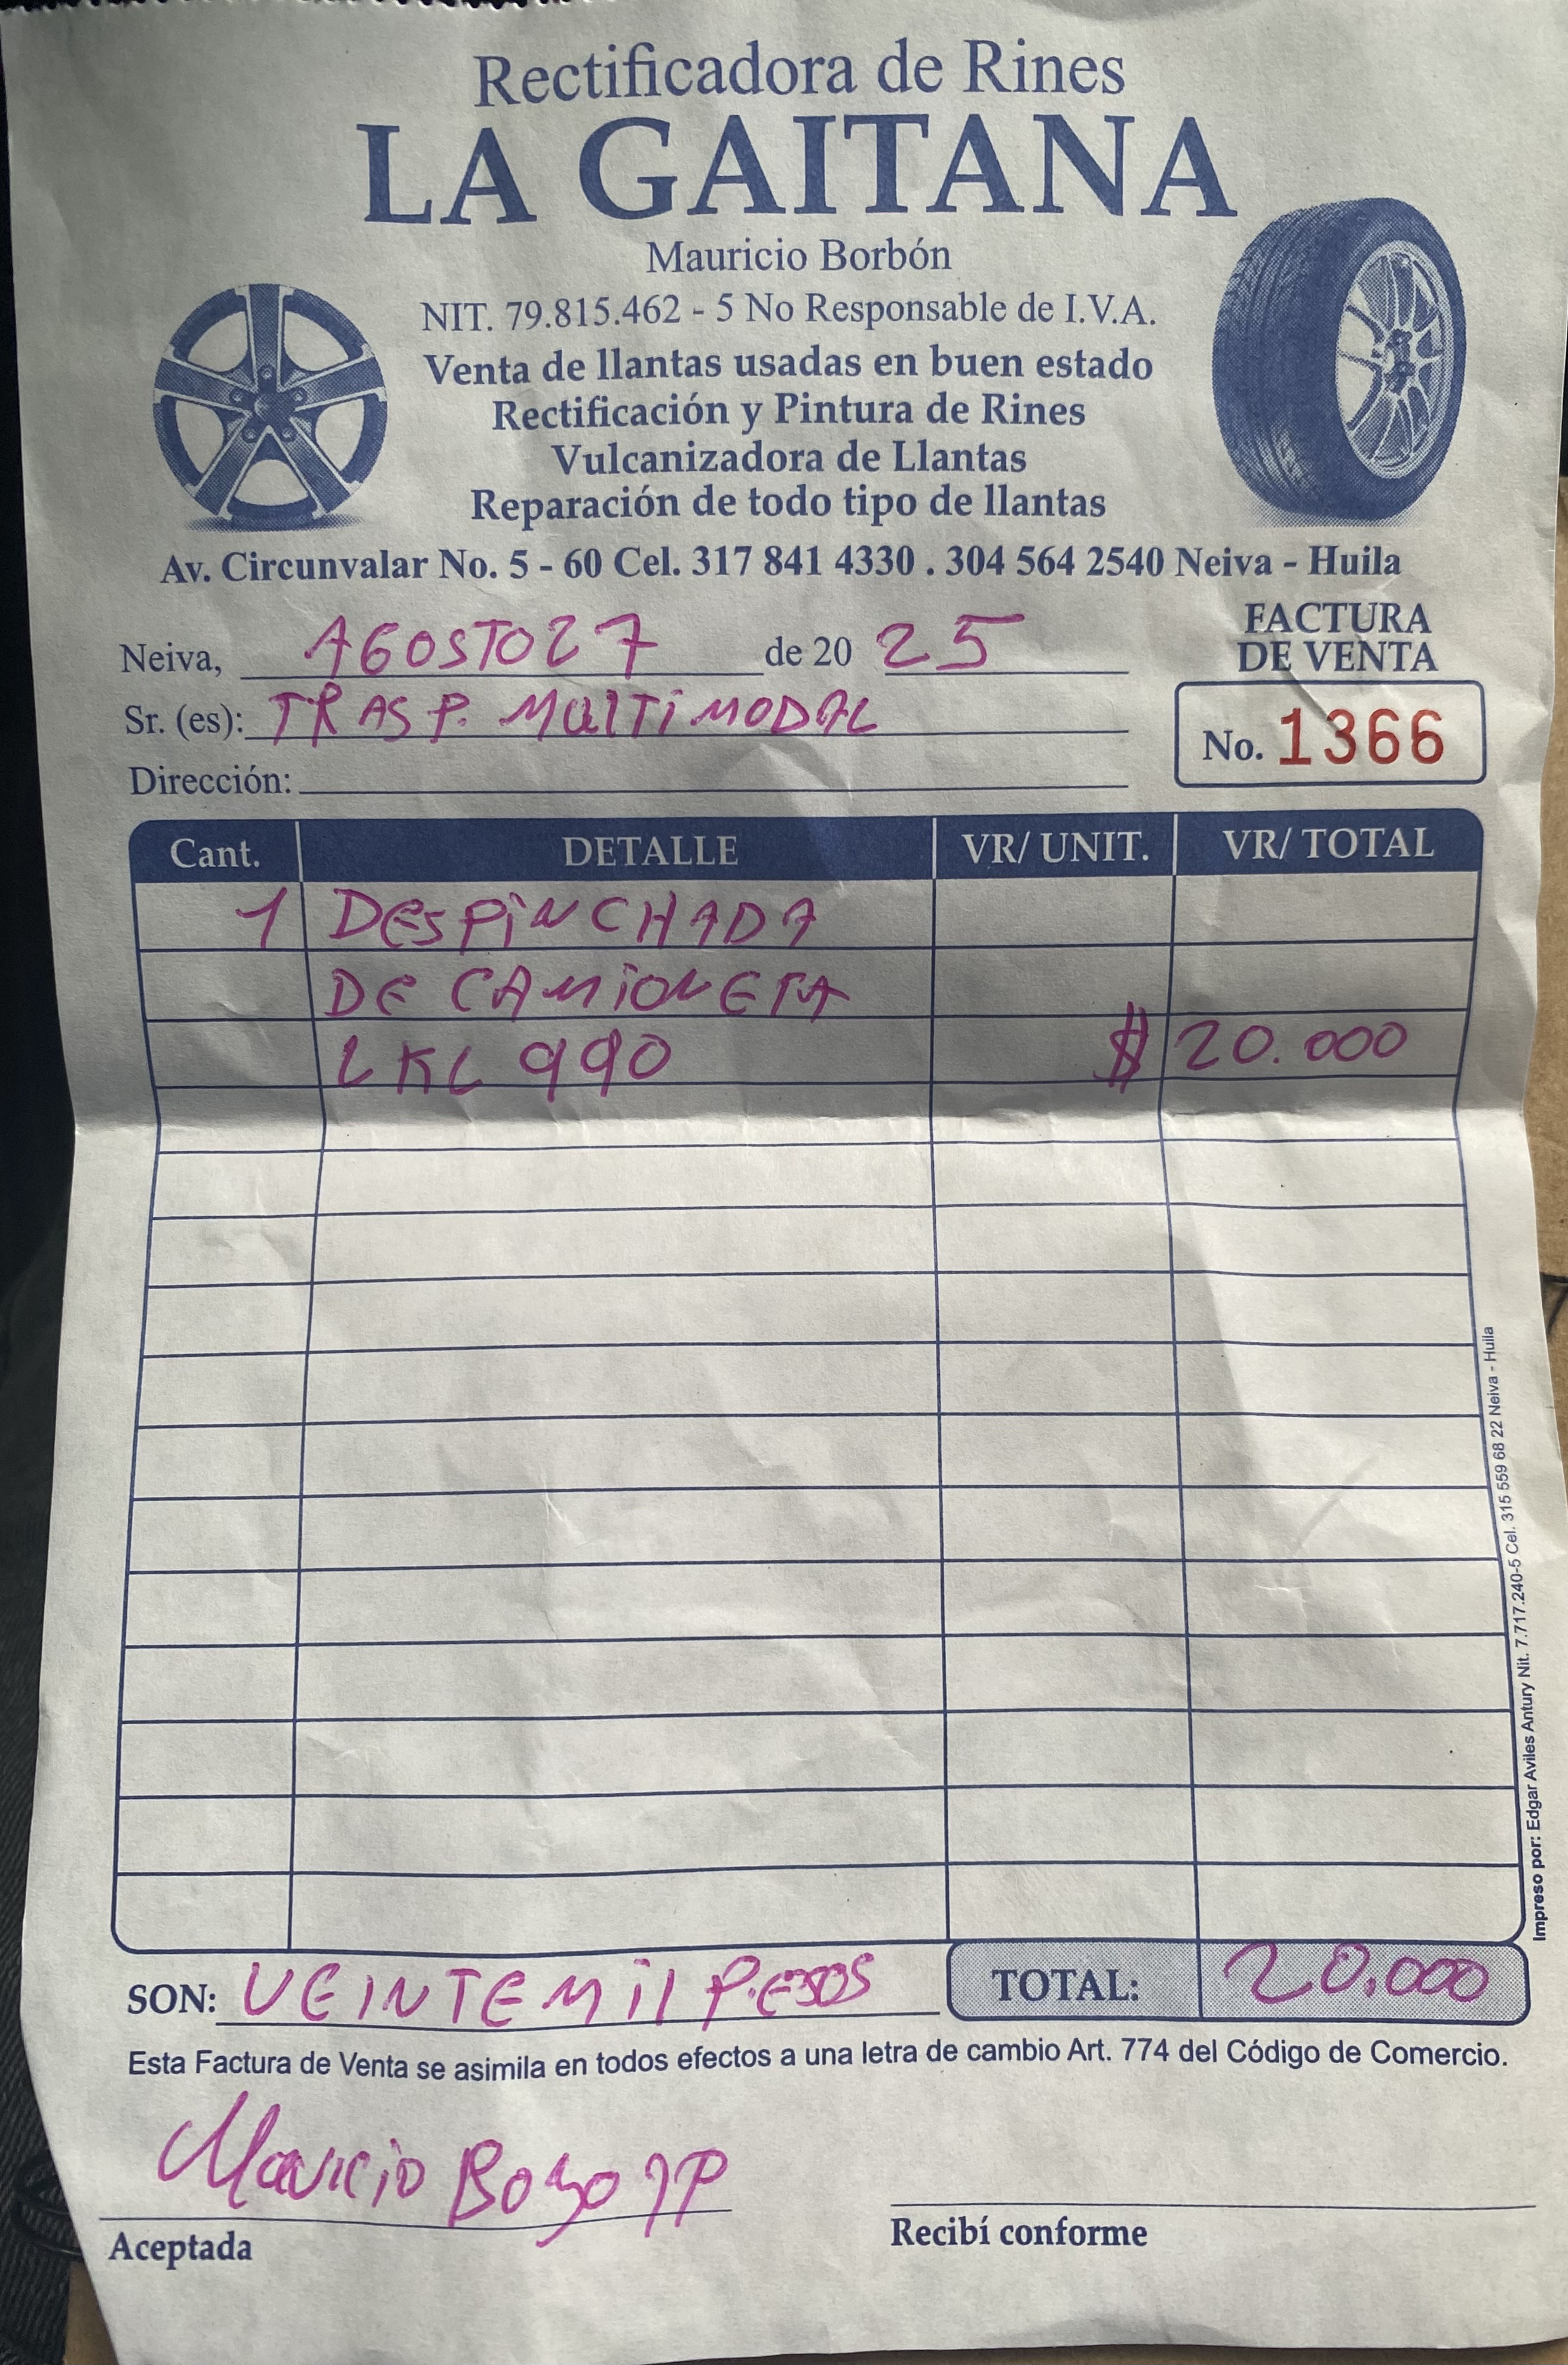 Rectificadora de Rines
LA GAITANA
Mauricio Borbón
NIT. 79.815.462 - 5 No Responsable de I.V.A.
Venta de llantas usadas en buen estado
Rectificación y Pintura de Rines
Vulcanizadora de Llantas
Reparación de todo tipo de llantas
Av. Circunvalar No. 5 - 60 Cel. 317 841 4330 . 304 564 2540 Neiva - Huila
Neiva, AGOSTO 27 de 20 25
FACTURA
DE VENTA
Sr. (es): TRASP. MULTIMODAL
No. 1366
Dirección:
Cant. DETALLE VR/ UNIT. VR/ TOTAL
1 DESPINCHADA
DE CAMIONETA
LKL 990 $ 20.000
SON: VEINTE MIL PESOS TOTAL: 20.000
Esta Factura de Venta se asimila en todos efectos a una letra de cambio Art. 774 del Código de Comercio.
Mauricio
Aceptada Recibí conforme
Impreso por: Edgar Aviles Antury Nit. 7.717.240-5 Cel. 315 559 68 22 Neiva - Huila